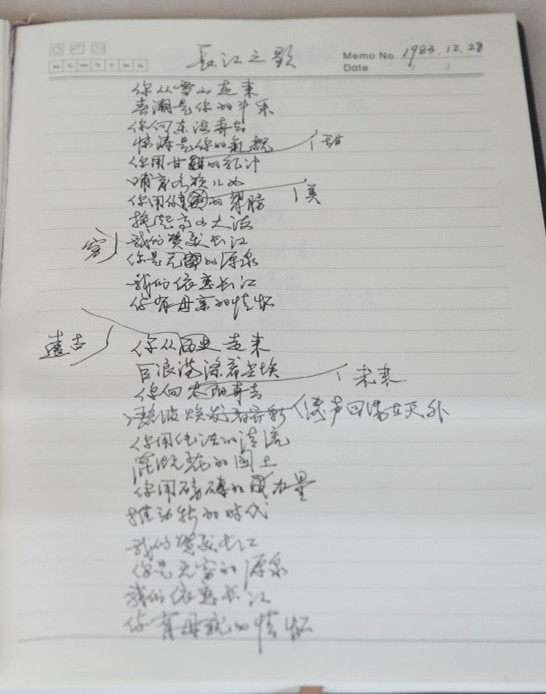 长江之歌
Memo No. 1983.12.28
Date
你从雪山走来
春潮是你的丰采
你向东海奔去
惊涛是你的气概
你用甘的乳汁 甜
哺育各族儿女
你用健的臂膀 美
挽起高山大海
我们赞美长江
你是无的源泉 穷
我们依恋长江
你有母亲的情怀
你从历史走来 远古
巨浪荡涤着尘埃
你向太阳奔去 未来
涛声回荡在天外
你用纯洁的清流
灌溉花的国土
你用磅礴的力量
推动新的时代
我们赞美长江
你是无穷的源泉
我们依恋长江
你有母亲的情怀